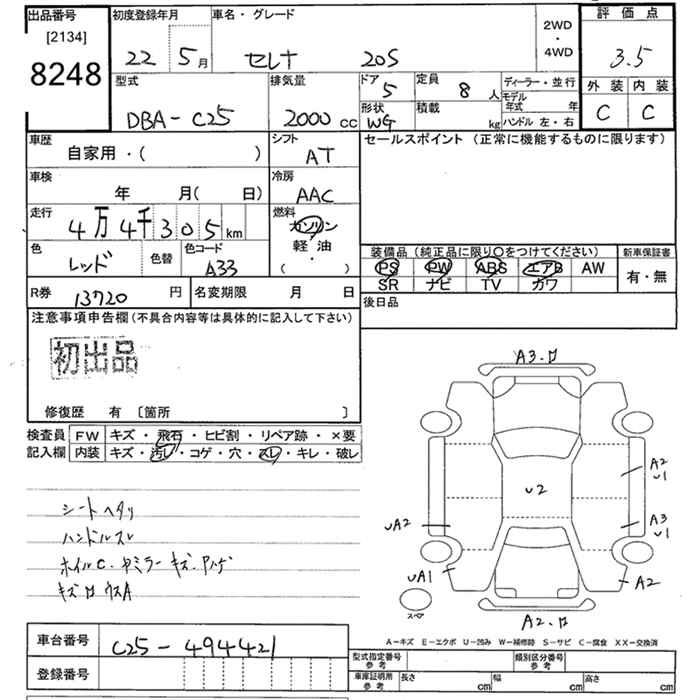 出品番号
[2134]
8248
初度登録年月
22 5月
車名・グレード
セレナ 20S
2WD
・
4WD
評価点
3.5
外装 内装
C C
型式
DBA-C25
排気量
2000 cc
ドア
5
定員
8 人
形状
WG
積載
kg
ディーラー・並行
モデル年式 年
ハンドル 左・右
車歴
自家用・( )
シフト
AT
セールスポイント (正常に機能するものに限ります)
車検
年 月( 日)
冷房
AAC
走行
4万4千305km
燃料
ガソリン
軽油
・
( )
色
レッド
色替
色コード
A33
装備品(純正品に限り○をつけてください)
PS PW ABS エアB AW
SR ナビ TV カワ
新車保証書
有・無
R券
13720 円
名変期限 月 日
後日品
注意事項申告欄(不具合内容等は具体的に記入して下さい)
初出品
修復歴 有 [箇所 ]
検査員
記入欄
FW キズ・飛石・ヒビ割・リペア跡・×要
内装 キズ・汚レ・コゲ・穴・スレ・キレ・破レ
シートヘタリ
ハンドルスレ
ホイルC.
キズ
A3.
U2
A2
U1
A3
U1
UA2
UA1
A2
スペア
A2.
A-キズ E-エクボ U-凹み W-補修跡 S-サビ C-腐食 XX-交換済
車台番号
C25-494421
登録番号
型式指定番号
参考
類別区分番号
参考
車庫証明用
参考
長さ cm
幅 cm
高さ cm